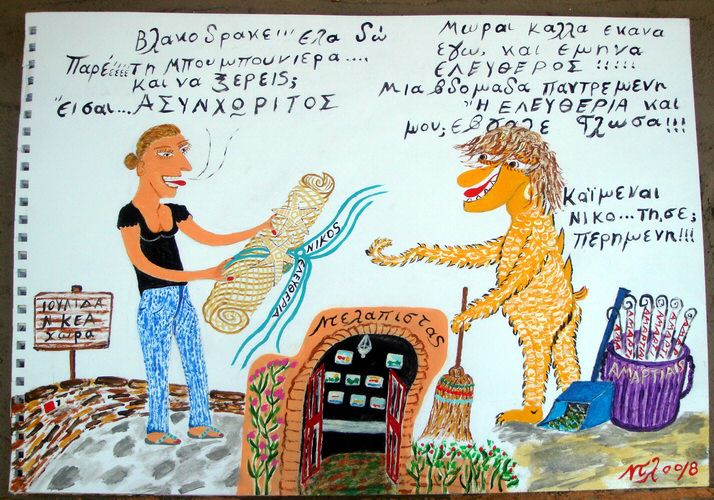 Βλακο δρακε!!! έλα δώ
Παρέ!!!! τη Μπουμπουνιερα....
και να ξερεις;
Έισαι... ΑΣΥΝΧΩΡΙΤΟΣ
Μωραι καλλα εκανα
εγω, και εμηνα
ΕΛΕΥΘΕΡΟΣ !!!!!
Μια βδομαδα παντρεμενη
Ή ΕΛΕΥΘΕΡΙΑ και
μου; εβγαλε Γλωσα!!!
Καϊμεναι
ΝΙΚΟ... ΤΗ,ΣΕ;
ΠΕΡΗΜΕΝΗ!!!
NIKOS
ΕΛΕΥΘΕΡΙΑ
ΙΟΥΛΙΔΑ
Α ΚΕΑ
χωρα
Ντελαπιστας
ΑΜΑΡΤΙΑΙΣ
Ντλ 0018